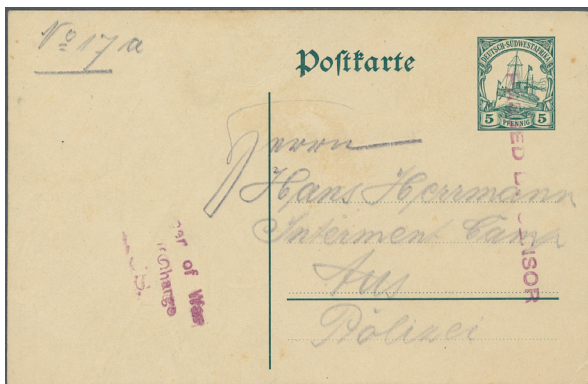 No 17a
Postkarte
DEUTSCH-SÜDWESTAFRIKA
5 PFENNIG 5
Herrn
Hans Herrmann
Interment Camp
Aus
Polizei
of War
Charge